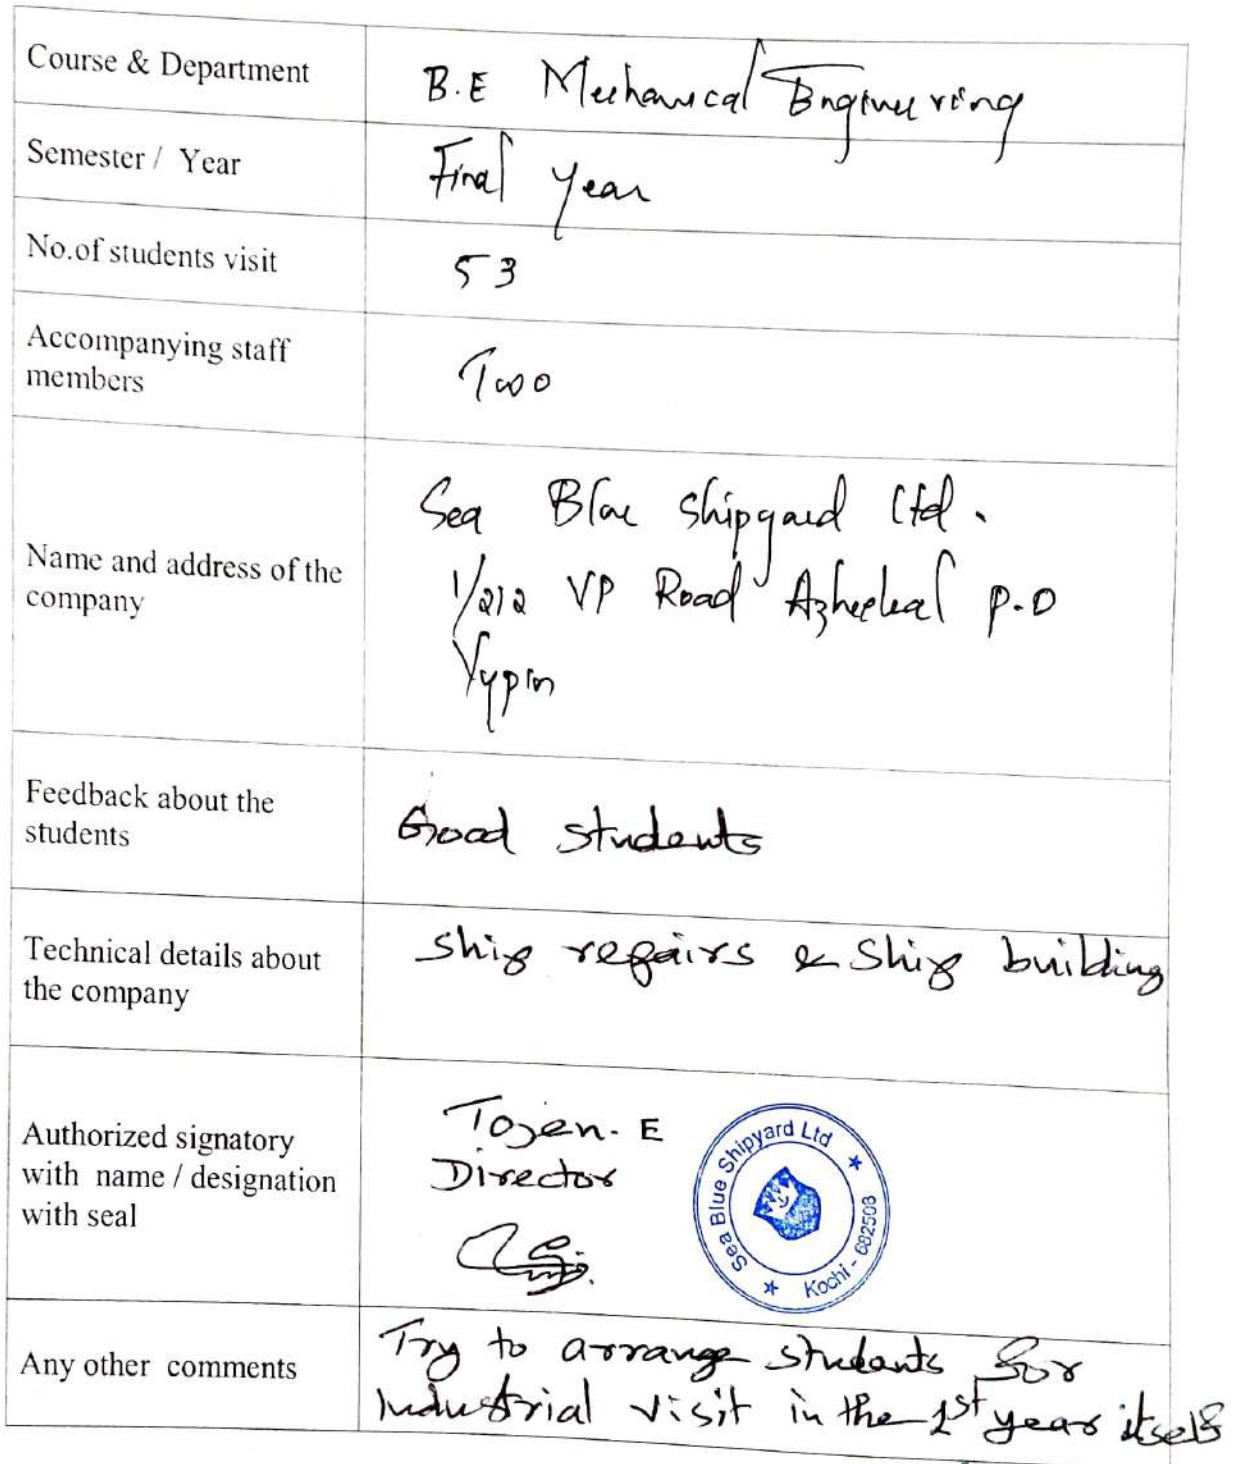 Course & Department
B.E Mechanical Engineering
Semester / Year
Final year
No.of students visit
53
Accompanying staff
members
Two
Name and address of the
company
Sea Blue Shipyard Ltd.
1/212 VP Road Azheekal P.O
Vypin
Feedback about the
students
Good students
Technical details about
the company
Ship repairs & Ship building
Authorized signatory
with name / designation
with seal
Tojen. E
Director
Sea Blue Shipyard Ltd
Kochi - 682508
Any other comments
Try to arrange students for
Industrial visit in the 1st year itself